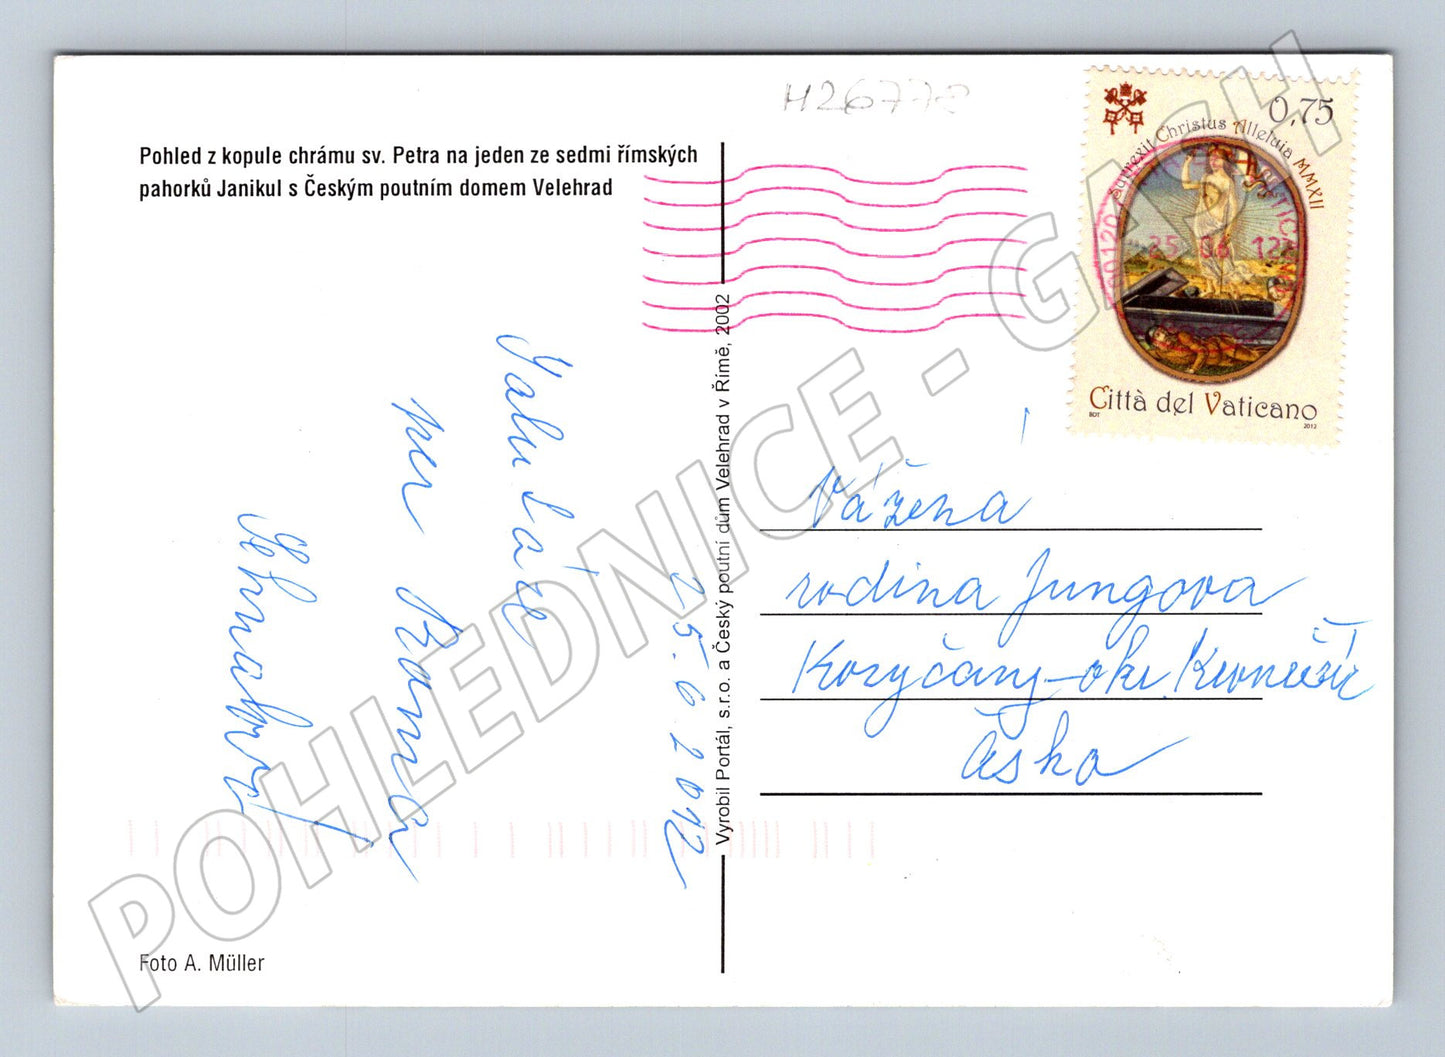 H26778
Pohled z kopule chrámu sv. Petra na jeden ze sedmi římských
pahorků Janikul s Českým poutním domem Velehrad
0,75
Surrexit Christus Alleluia MMXII
00120
25 06 12
Città del Vaticano
BDT
2012
25.6.2012
Vyrobil Portál, s.r.o. a Český poutní dům Velehrad v Římě, 2002
Vážena
rodina Jungova
Koryčany - okr. Kroměříž
Foto A. Müller
POHLEDNICE - GASH